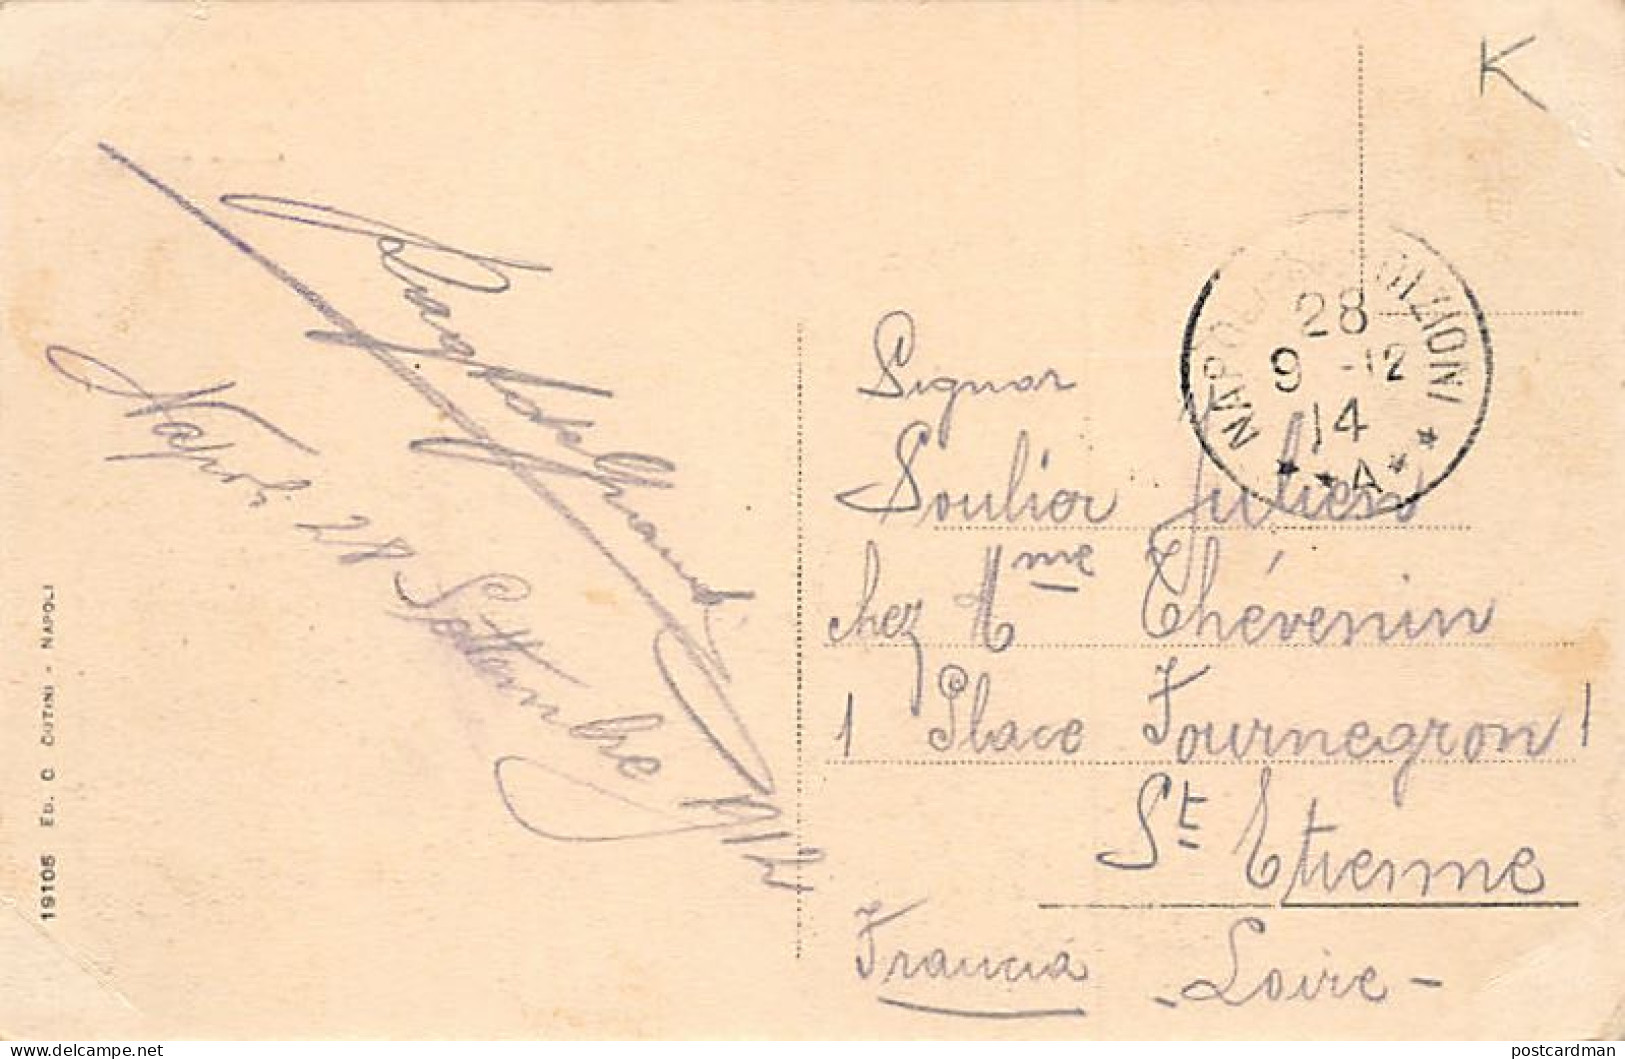 K
28
9-12
14
A
NAPOLI DIZIONI
Napoli 28 Settembre 1914
Signor
Soulier Julien
chez Mme Thévenin
1 Place Fournegron 1
St Etienne
Francia - Loire -
19105 Ed. C. Cutini - Napoli
postcardman